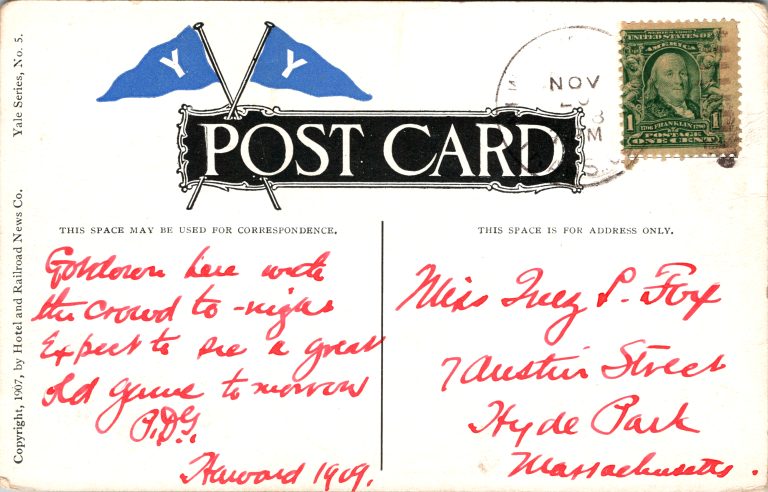 Y Y
NOV
POST CARD
SERIES 1902
UNITED STATES OF
AMERICA
1706 FRANKLIN 1790
1 POSTAGE 1
ONE CENT
Yale Series, No. 5.
Copyright, 1907, by Hotel and Railroad News Co.
THIS SPACE MAY BE USED FOR CORRESPONDENCE.
Got down here with
the crowd to-night
Expect to see a great
old game tomorrow
P.D.G.
Harvard 1909.
THIS SPACE IS FOR ADDRESS ONLY.
Miss Inez P. Fox
7 Austin Street
Hyde Park
Massachusetts.